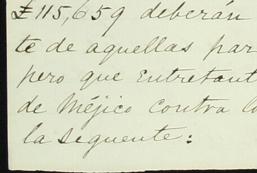 £115,659 deberán
te de aquellas par
pero que entretant
de Méjico contra lo
la seguente: